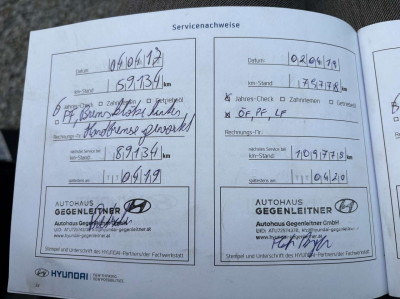 Servicenachweise
Datum: 04 04 17
km-Stand: 59134 km
Jahres-Check Zahnriemen Getriebeöl
PF, Bremsklötze hinten
Rechnungs-Nr.: Handbremse
nächster Service bei km-Stand: 89134 km
spätestens am: 04 19
AUTOHAUS
GEGENLEITNER
Autohaus Gegenleitner GmbH
www.hyundai-gegenleitner.at
Stempel und Unterschrift des HYUNDAI-Partners/der Fachwerkstatt
HYUNDAI
NEW THINKING.
NEW POSSIBILITIES.
Datum: 02 04 19
km-Stand: 79778 km
Jahres-Check Zahnriemen Getriebeöl
ÖF, PF, LF
Rechnungs-Nr.:
nächster Service bei km-Stand: 109778 km
spätestens am: 04 20
AUTOHAUS
GEGENLEITNER
Autohaus Gegenleitner GmbH
www.hyundai-gegenleitner.at
Stempel und Unterschrift des HYUNDAI-Partners/der Fachwerkstatt